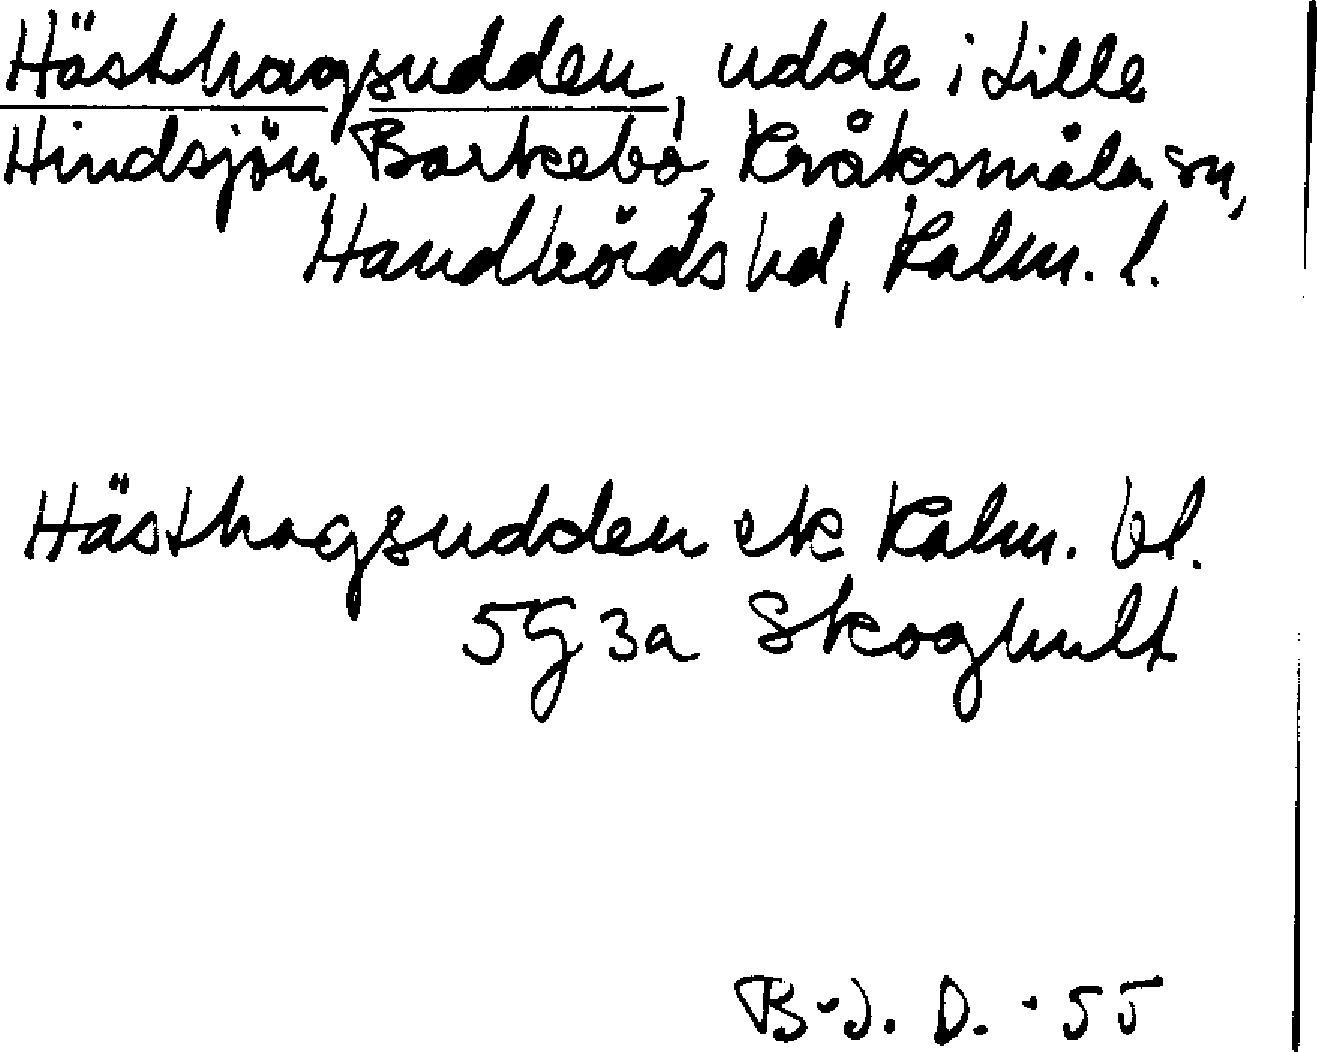 Hästhagsudden, udde i Lille
Hindsjön, Barkebo, Kråksmåla sn,
Handbörds hd, Kalm. l.
Hästhagsudden ek Kalm. bl.
5G 3a Skoghult
B-J. D. -55